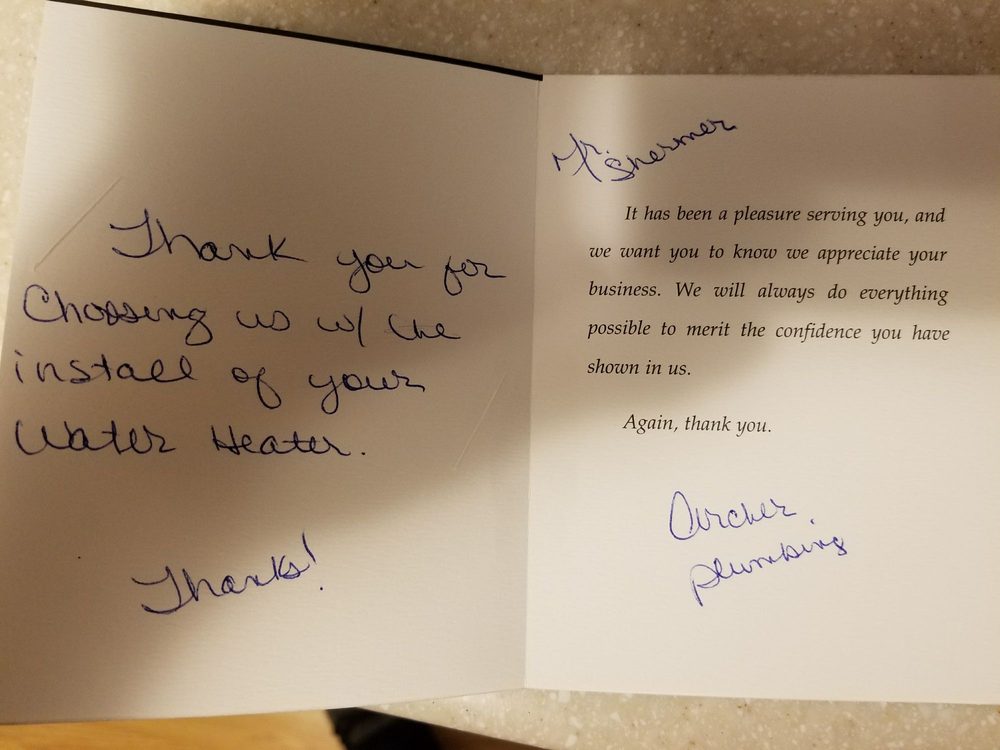 Thank you for
Chossing us w/ the
install of your
Water Heater.
Thanks!
Mr. Shermer
It has been a pleasure serving you, and
we want you to know we appreciate your
business. We will always do everything
possible to merit the confidence you have
shown in us.
Again, thank you.
Archer
plumbing